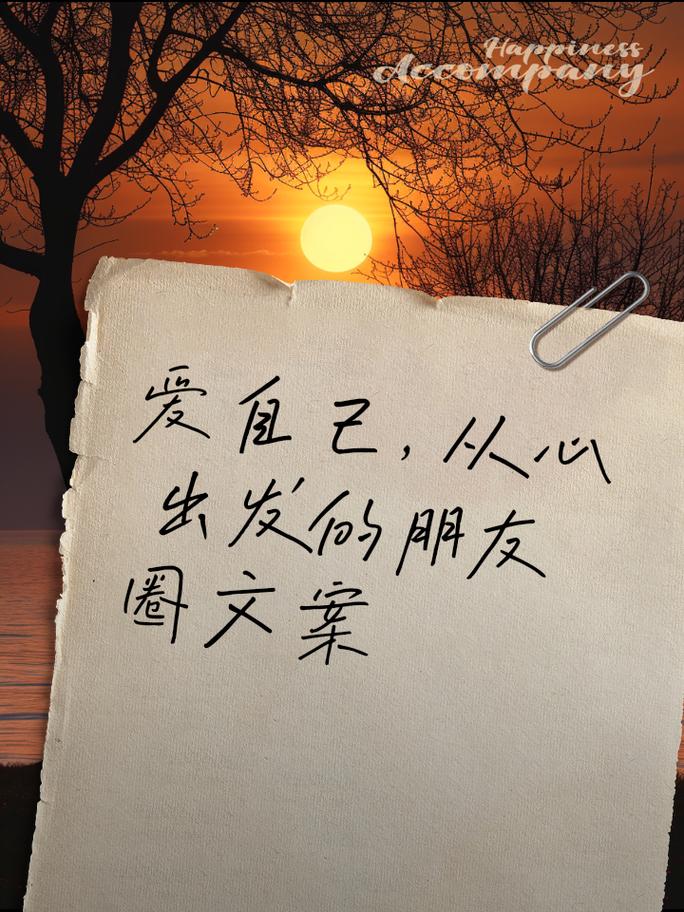 Happiness
Accompany
爱自己，从心
出发的朋友
圈文案